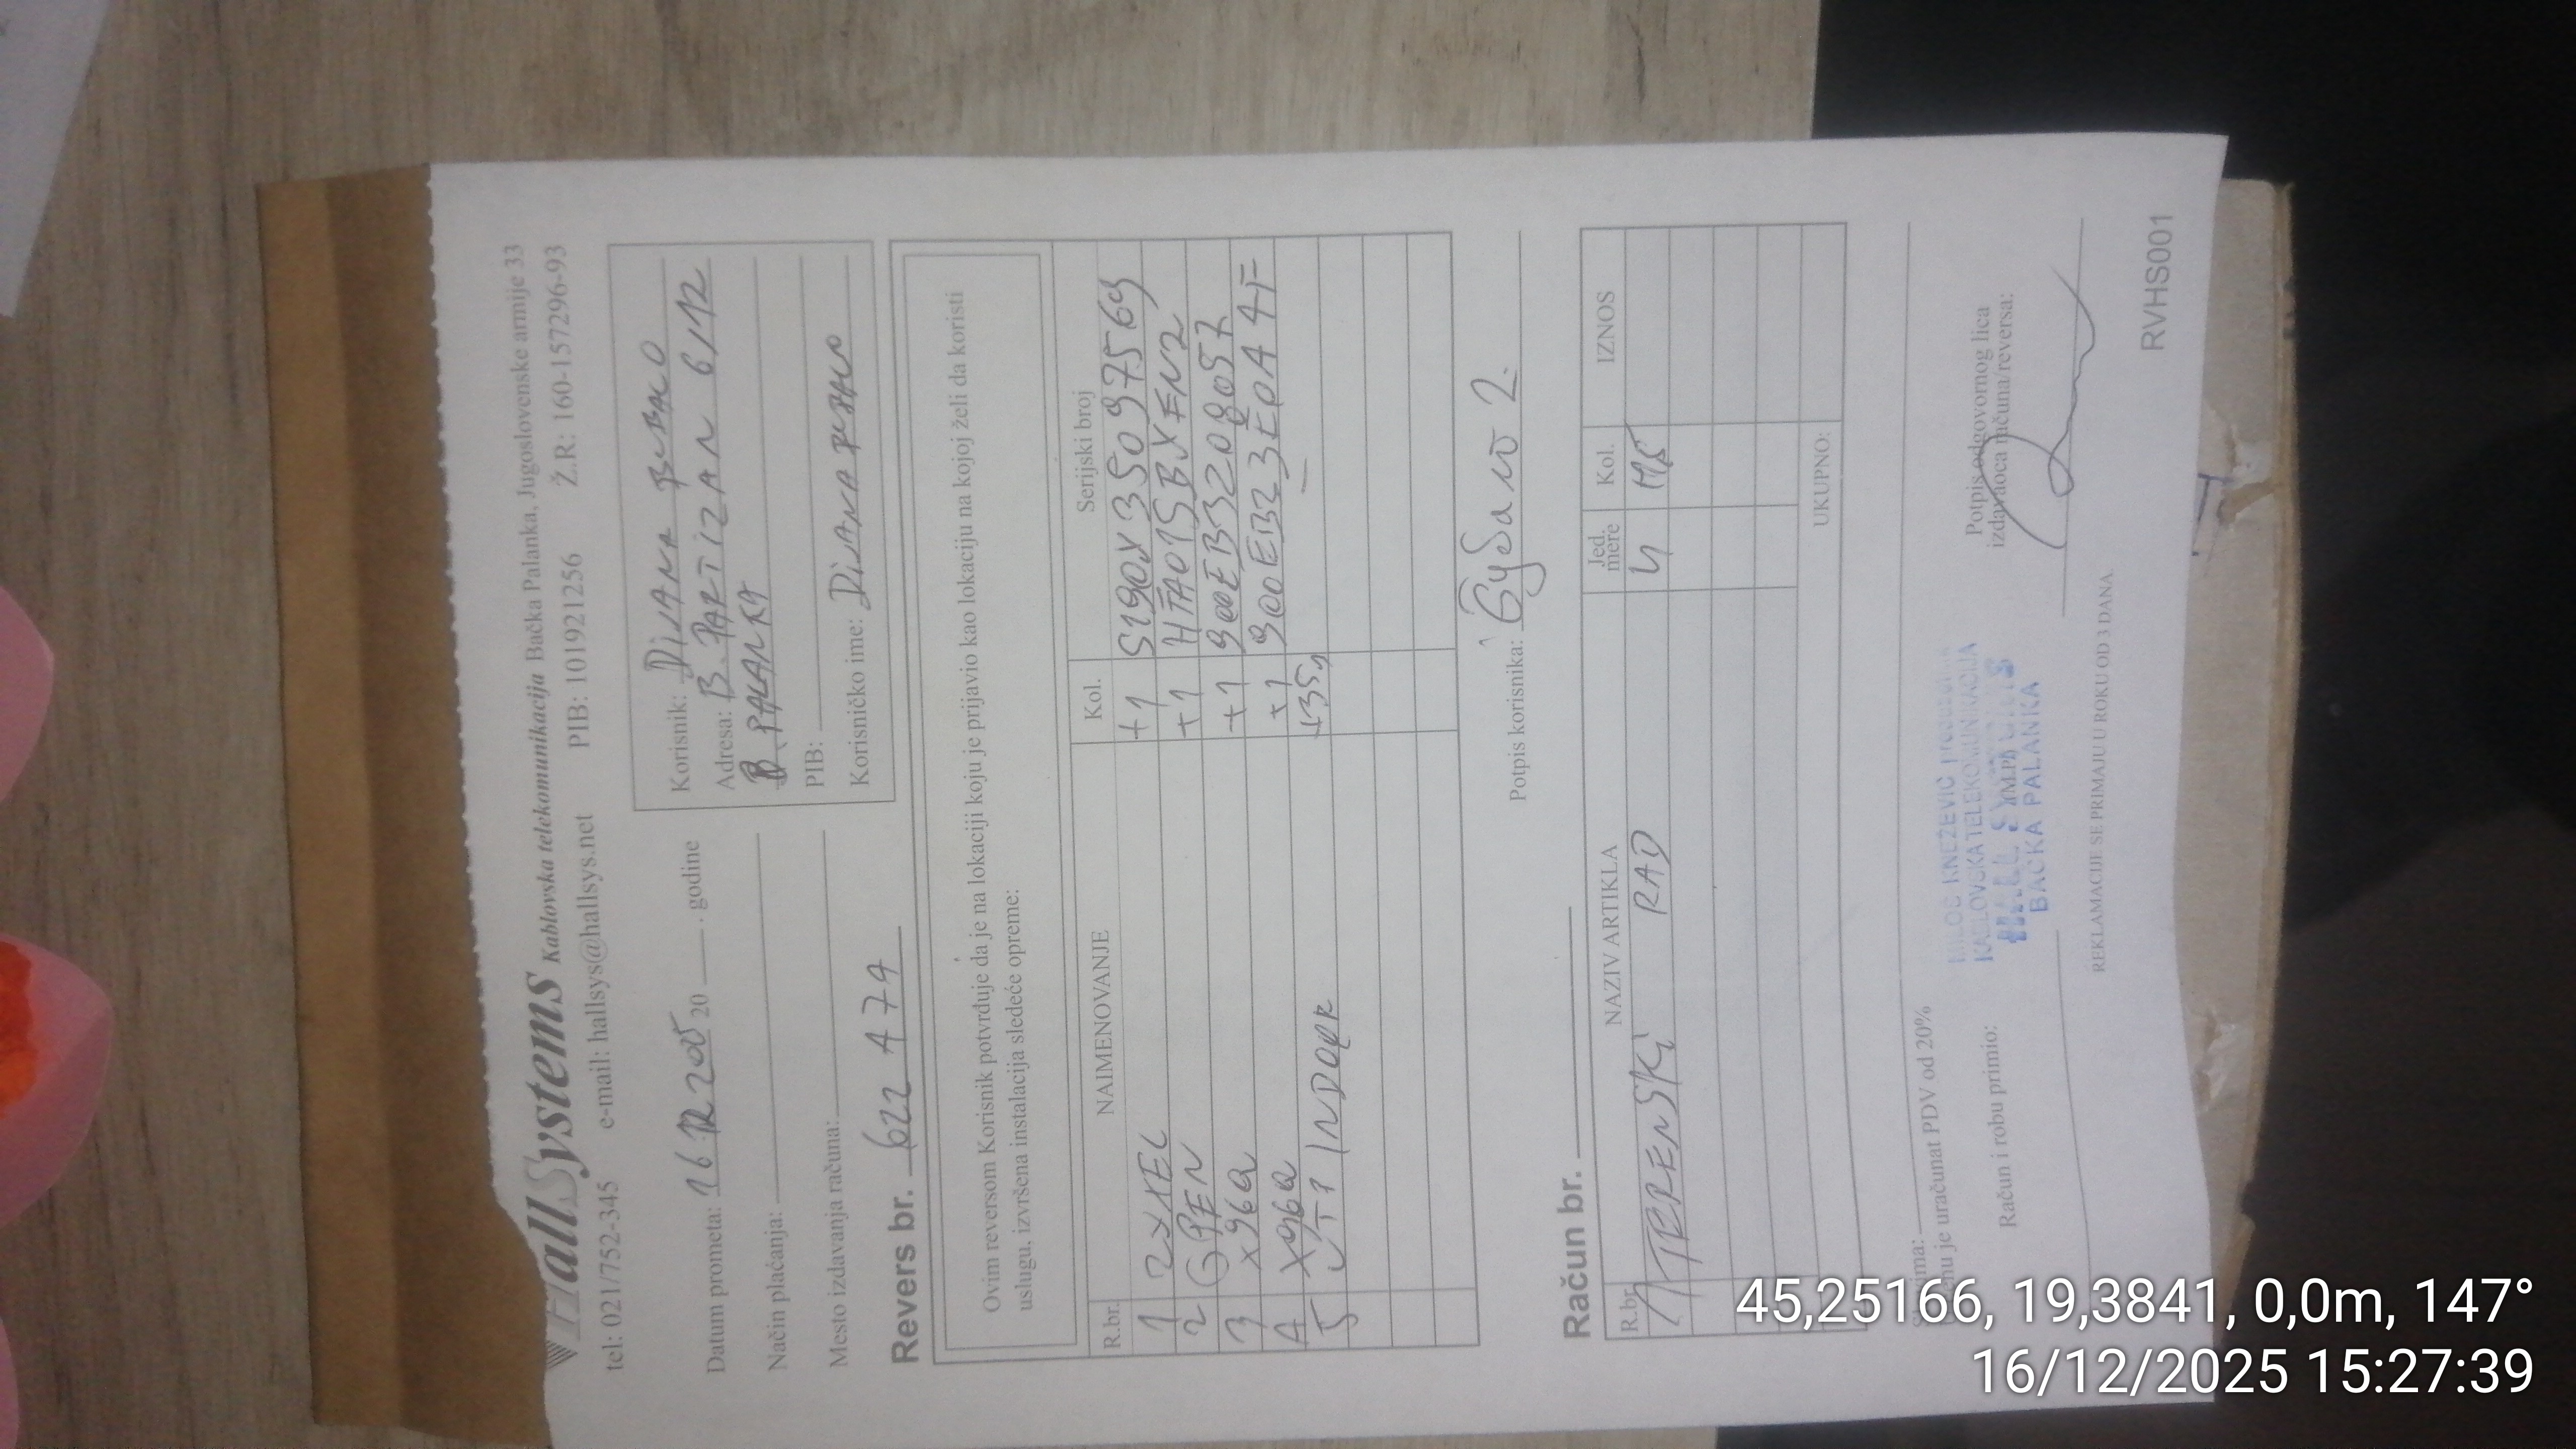 HallSystems Kablovska telekomunikacija Bačka Palanka, Jugoslovenske armije 33
tel: 021/752-345 e-mail: hallsys@hallsys.net PIB: 101921256 Ž.R: 160-157296-93
Datum prometa: 16 12 2025 20 . godine
Način plaćanja:
Mesto izdavanja računa:
Korisnik: DIJANA BUBALO
Adresa: B. PARTIZAN 6/12
B. PALANKA
PIB:
Korisničko ime: DIJANA BUBALO
Revers br. 622 474
Ovim reversom Korisnik potvrđuje da je na lokaciji koju je prijavio kao lokaciju na kojoj želi da koristi
uslugu, izvršena instalacija sledeće opreme:
R.br. NAIMENOVANJE Kol. Serijski broj
1 ZYXEL +1 S190Y35097569
2 GPEN +1
3 X96Q +1
4 X96Q +1 900EB323E0A4F
5 UTP INDOOR +35m
Potpis korisnika:
Račun br.
R.br. NAZIV ARTIKLA Jed. mere Kol. IZNOS
1 TERENSKI RAD
UKUPNO:
u je uračunat PDV od 20%
Račun i robu primio:
MILOŠ KNEŽEVIĆ
KABLOVSKA TELEKOMUNIKACIJA
HALL SYSTEMS
BAČKA PALANKA
M.P.
Potpis odgovornog lica
izdavaoca računa/reversa:
REKLAMACIJE SE PRIMAJU U ROKU OD 3 DANA.
RVHS001
45,25166, 19,3841, 0,0m, 147°
16/12/2025 15:27:39